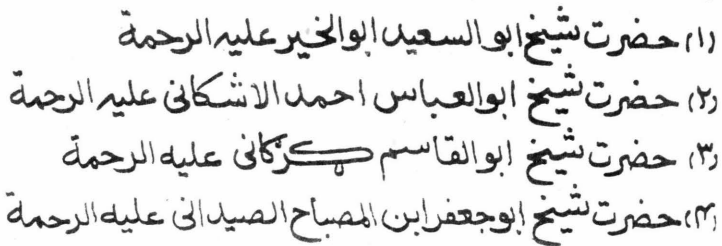 (۱) حضرت شیخ ابو السعید ابو الخیر علیہ الرحمة
(۲) حضرت شیخ ابو العباس احمد الاشکانی علیہ الرحمة
(۳) حضرت شیخ ابو القاسم کرکانی علیہ الرحمة
(۴) حضرت شیخ ابو جعفر ابن المصباح الصیدانی علیہ الرحمة